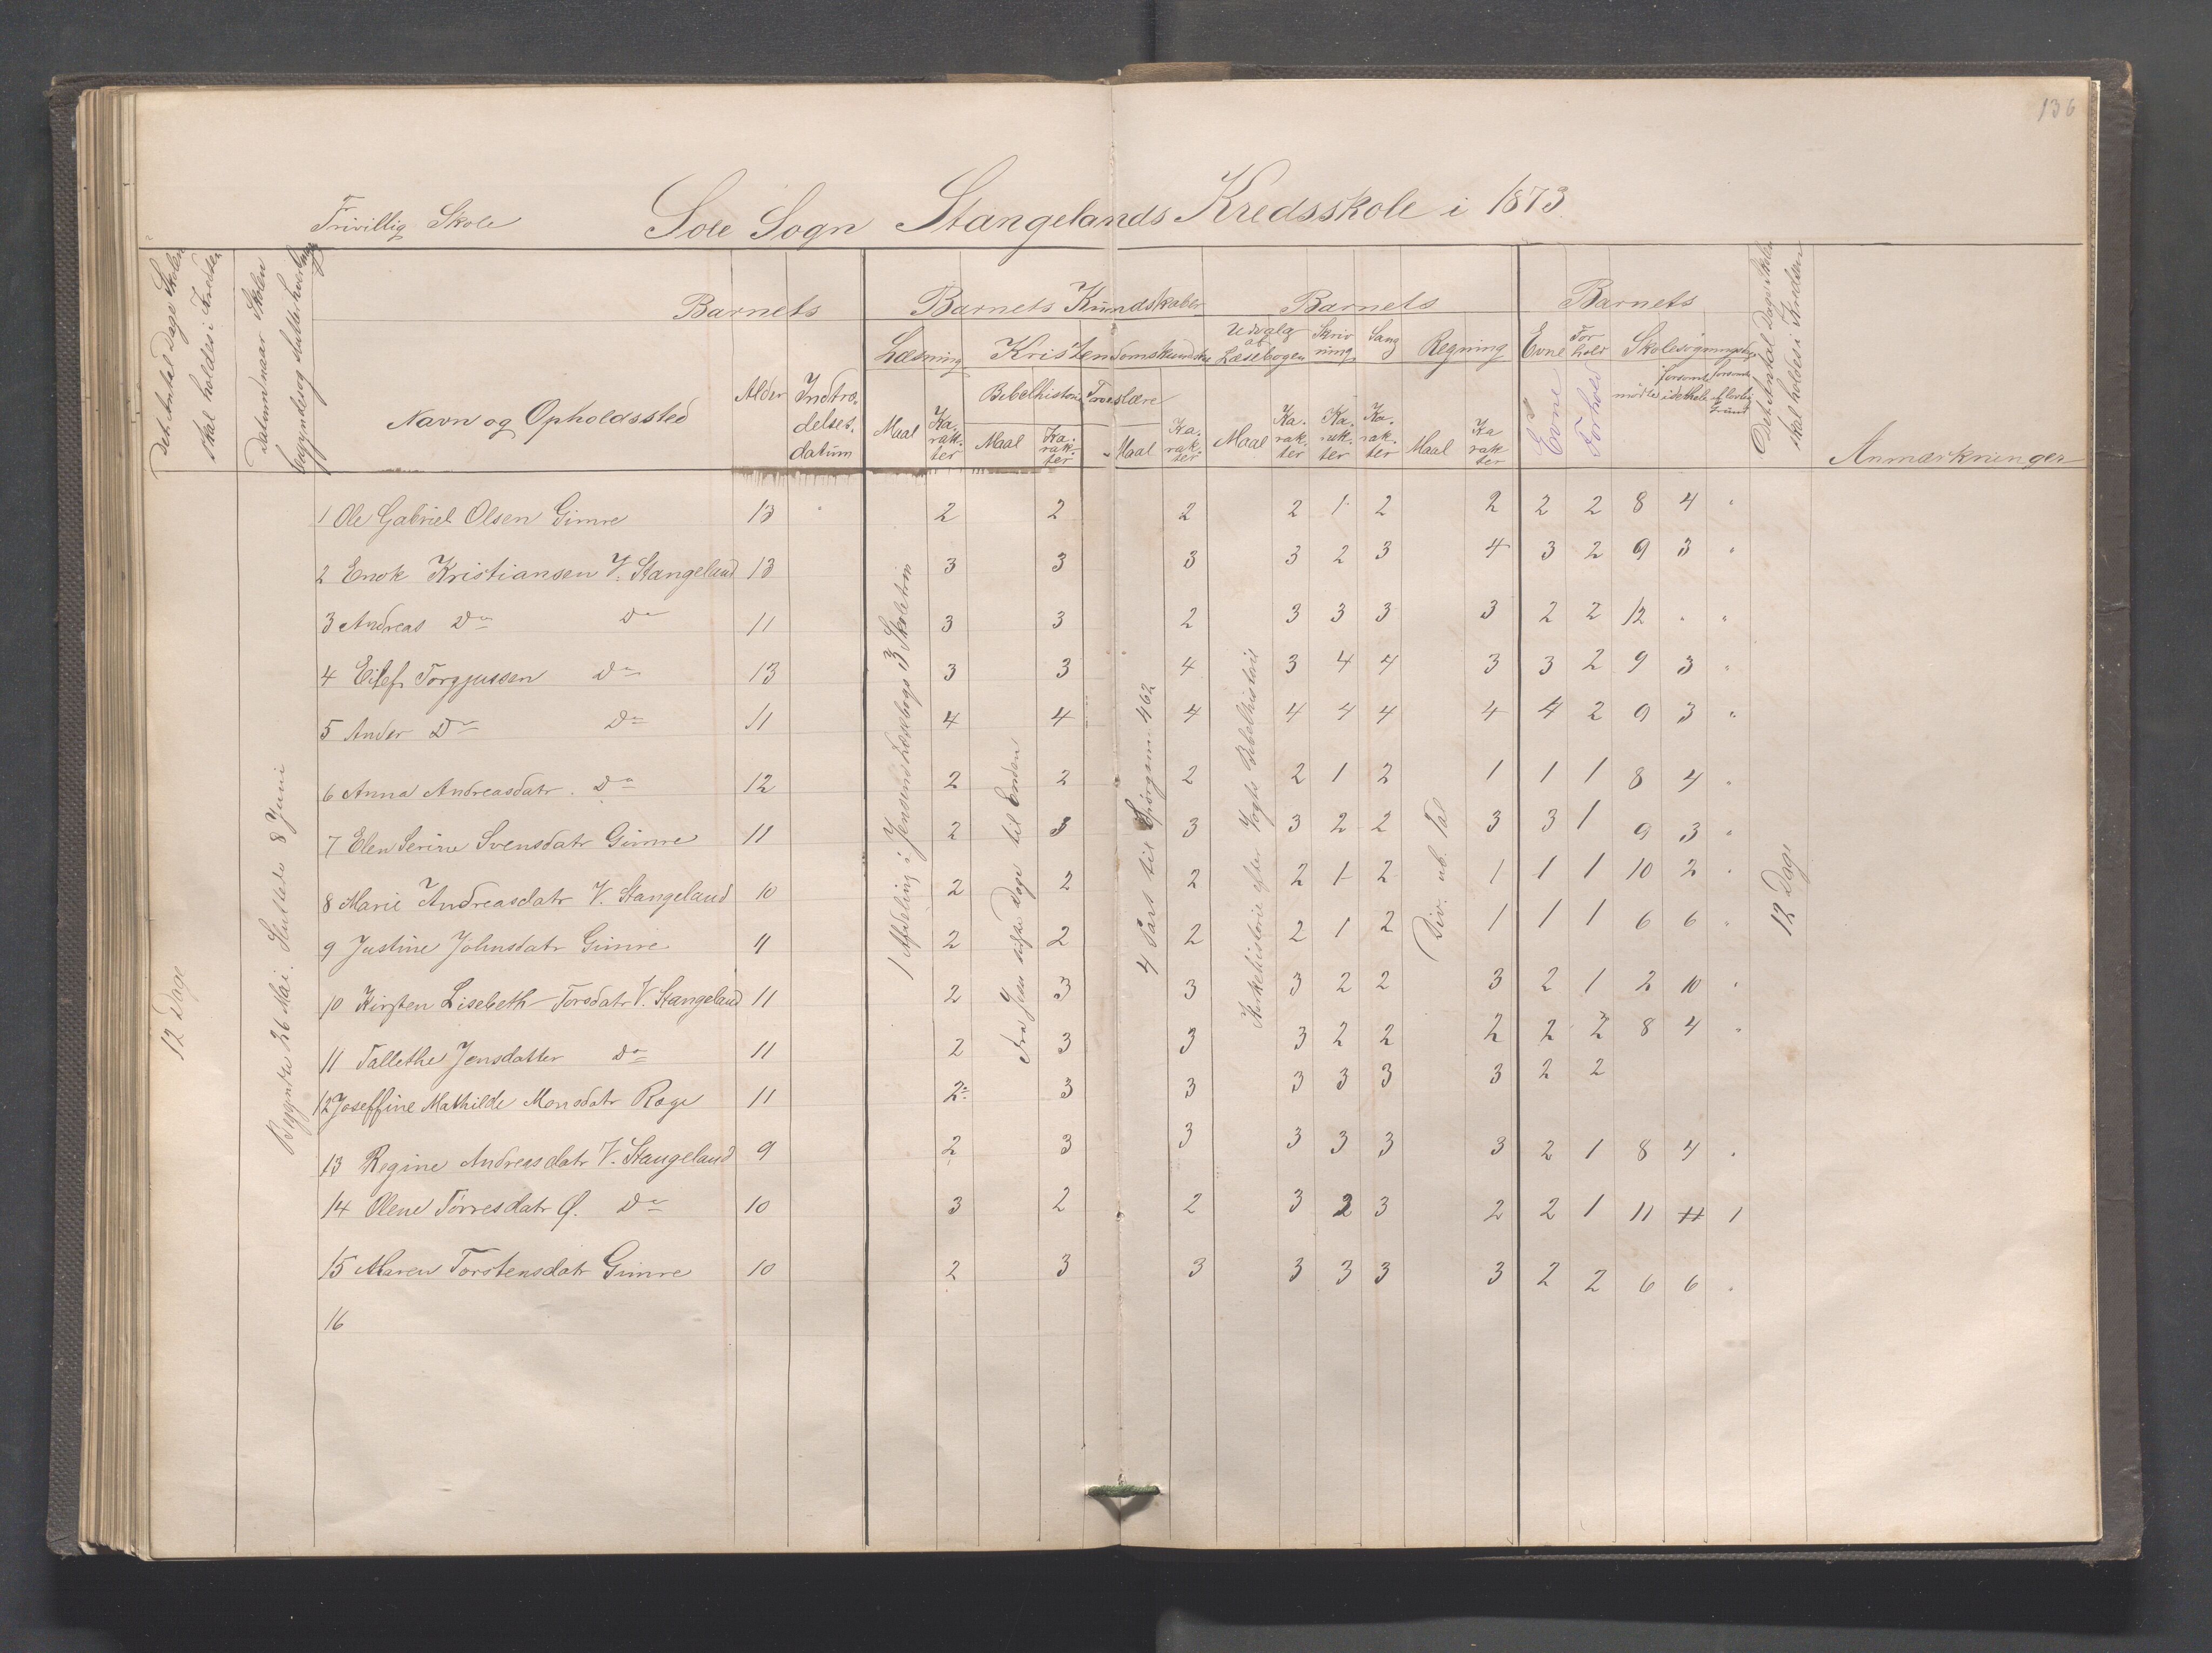 136
Frivillig Skole Sole Sogn Stangelands Kredsskole i 1873.
Det Antal Dage Skolen skal holdes i Kredsen
Datum naar Skolen begynder og slutter hver Gang
Barnets
Barnets Kundskaber
Barnets
Barnets
Det Antal Dage Skolen skal holdes i Kredsen
Læsning Kristendomskundskab Udvalg af Læsebogen Skrivning Sang Regning Evne Forhold Skolesøgningsdage
Bibelhistorie Troeslære
Navn og Opholdssted Alder Indtrædelsesdatum Maal Karakter Maal Karakter Maal Karakter Maal Karakter Karakter Karakter Maal Karakter Evne Forhold mødte forsømte i det hele forsømte af lovlig Grund Anmærkninger
12 Dage
Begyndte 26 Mai. Sluttede 8 Juni
1 Afdeling i Jensens Læsebogs 3 Skoletrin
Fra Jesu sidste Dage til Enden
4 Part til Spørgsm. 462
Kirkehistorie efter Vogts Bibelhistorie
Div. ub. Tal
12 Dage
1 Ole Gabriel Olsen Gimre 13 2 2 2 2 1 2 2 2 2 8 4 "
2 Enok Kristiansen V. Stangeland 13 3 3 3 3 2 3 4 3 2 9 3 "
3 Andreas Do Do 11 3 3 2 3 3 3 3 2 2 12 " "
4 Eilef Torgjussen Do 13 3 3 4 3 4 4 3 3 2 9 3 "
5 Ander Do Do 11 4 4 4 4 4 4 4 4 2 9 3 "
6 Anna Andreasdatr. Do 12 2 2 2 2 1 2 1 1 1 8 4 "
7 Elen Serine Svensdatr Gimre 11 2 3 3 3 2 2 3 3 1 9 3 "
8 Marie Andreasdatr V. Stangeland 10 2 2 2 2 1 2 1 1 1 10 2 "
9 Justine Johnsdatr Gimre 11 2 2 2 2 1 2 1 1 1 6 6 "
10 Kirsten Lisebeth Torsdatr V. Stangeland 11 2 3 3 3 2 2 3 2 1 2 10 "
11 Tallethe Jensdatter Do 11 2 3 3 3 2 2 2 2 2 8 4 "
12 Joseffine Mathilde Monsdatr Roge 11 2 3 3 3 3 3 3 2 2
13 Regine Andreasdatr V. Stangeland 9 2 3 3 3 3 3 3 2 1 8 4 "
14 Olene Torresdatr Ø. Do 10 3 2 2 3 2 3 2 2 1 11 1
15 Maren Torstensdatr Gimre 10 2 3 3 3 3 3 3 2 2 6 6 "
16